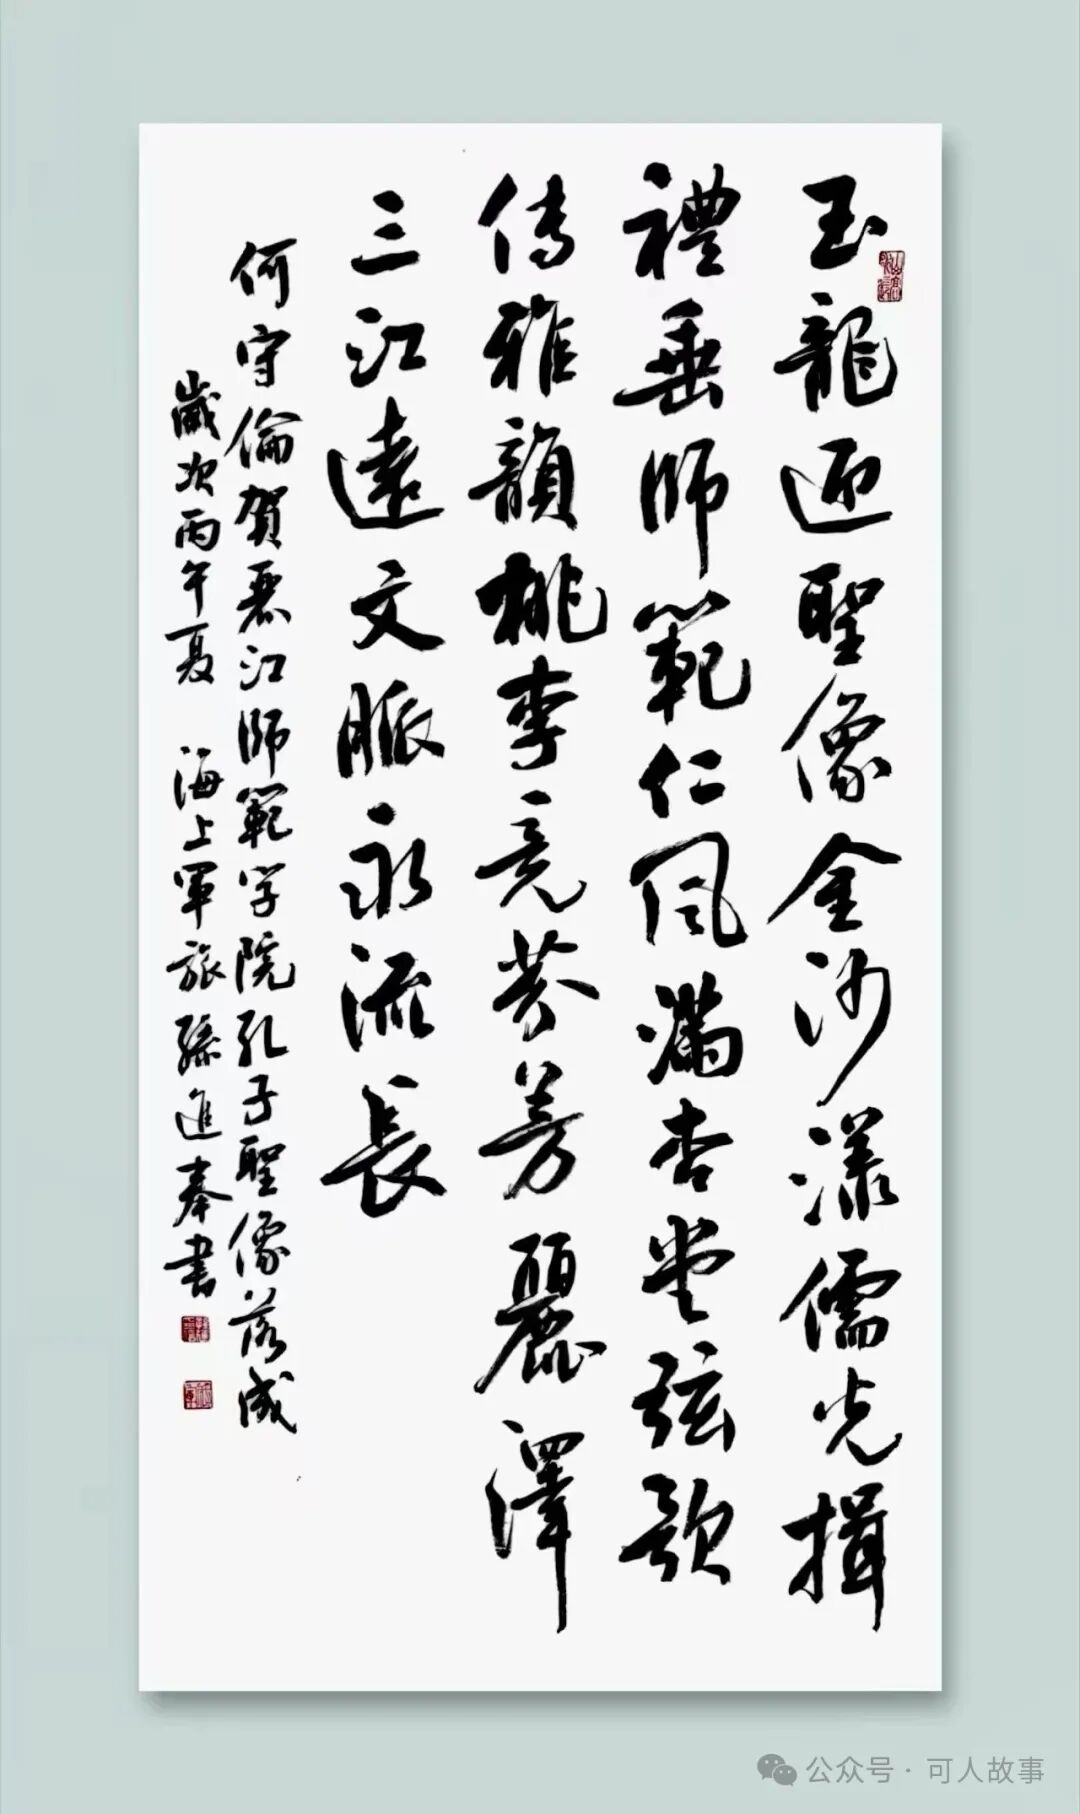 玉龍迎聖像金沙漾儒光揖
禮垂師範仁風滿杏堂弦歌
傳雅韻桃李竞芬芳麗澤
三江遠文脈永流長
何守倫賀麗江師範学院孔子聖像落成
歲次丙午夏 海上軍旅孫進奉書
公众号 · 可人故事